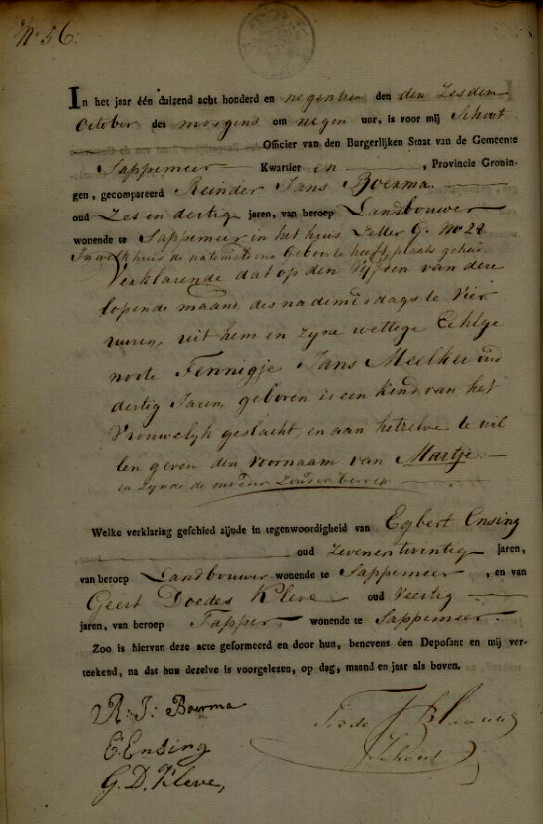 N° 56.
In het jaar één duizend acht honderd en negentien den den Zesden
October des morgens om negen uur, is voor mij Schout
Officier van den Burgerlijken Staat van de Gemeente
Sappemeer Kwartier en , Provincie Gronin-
gen, gecompareerd Reinder Jans Boerma
oud Zes en dertig jaren, van beroep Landbouwer
wonende te Sappemeer in het huis Letter G. No 22
In welk huis de natemeldene Geboorte heeft plaats gehad.
Verklarende dat op den Vyfden van deze
lopende maand des nademiddags te vier
uuren, uit hem en zyne wettige Echtge
noote Fennigje Jans Meelker oud
dertig Jaren, geboren is een kind van het
Vrouwelyk geslacht, en aan hetzelve te wil
len geven den voornaam van Martje
en zynde de moeder zonder beroep
Welke verklaring geschied zijnde in tegenwoordigheid van Egbert Ensing
oud Zevenentwintig jaren,
van beroep Landbouwer wonende te Sappemeer , en van
Geert Doedes Kleve oud Veertig
jaren, van beroep Tapper wonende te Sappemeer.
Zoo is hiervan deze acte geformeerd en door hun, benevens den Deposant en mij ver-
teekend, na dat hun dezelve is voorgelezen, op dag, maand en jaar als boven.
R: J: Boerma
E. Ensing
G. D. Kleve,
Schout